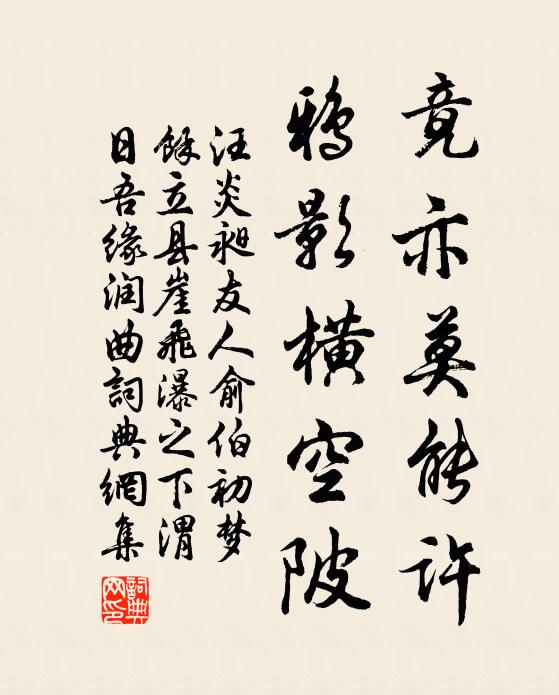 竟亦莫能许
鸦影横空陂
汪炎昶友人俞伯初梦
馀立县崖飛瀑之下渭
日吾缘润曲詞典網集
詞典网印